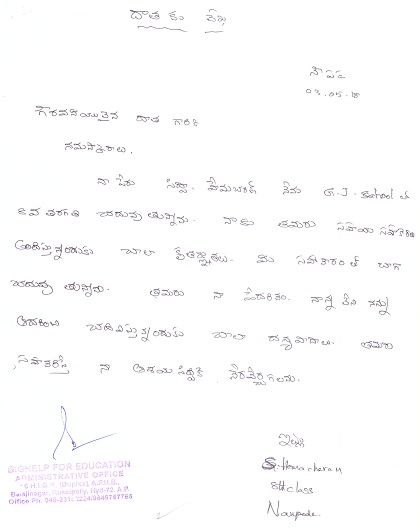 దాత కు లేఖ
నౌపడ
03.05.18
గౌరవనీయులైన దాత గారికి
నమస్కారాలు.
నా పేరు నేను G.J. School లో
8వ తరగతి చదువు తున్నాను. నాకు తమరు సహాయ సహకారం
అందిస్తున్నందుకు చాలా కృతజ్ఞతలు. మీ సహకారం తో బాగా
చదువు తున్నాను. తమరు నా పేదరికం. నాన్న లేని నన్ను
ఆదరించి చదివిస్తున్నందుకు చాలా ధన్యవాదాలు. తమరు
సహకారంతో నా ఆశయ సిద్ధికి నెరవేర్చగలను.
ఇట్లు
8th class
Naupada
SIGNHELP FOR EDUCATION
ADMINISTRATIVE OFFICE
(Duplex) A.P.H.B.,
Barajinagar, Kukatpally, Hyd-72. A.P.
Office Ph: 040-